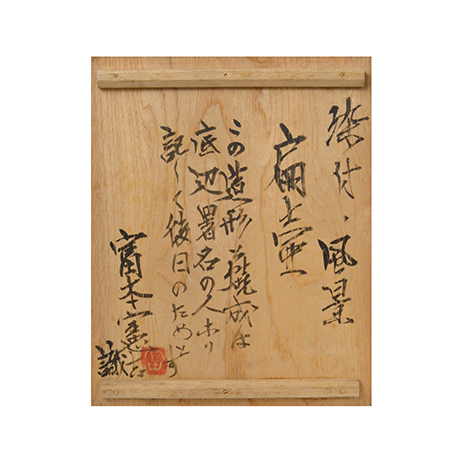 染付、風景
扁壺
この造形・焼成は
底辺署名の人なり
記して後日のためとす
富本憲吉
識